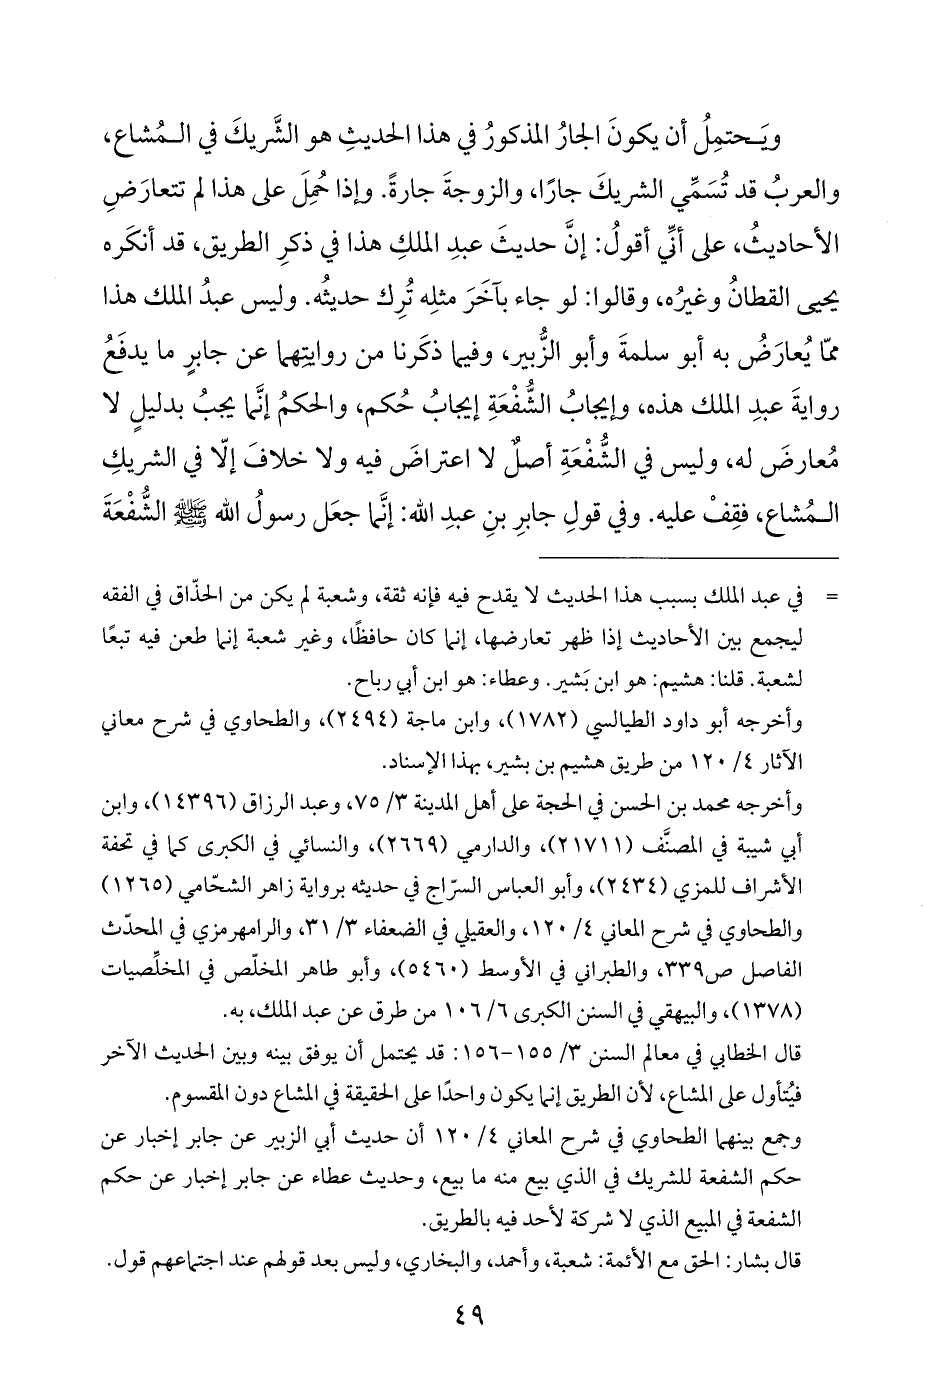 ويَـحتمِلُ أن يكونَ الجارُ المذكورُ في هذا الحديثِ هو الشَّريكَ في الـمُشاع،
والعربُ قد تُسَمِّي الشريكَ جارًا، والزوجةَ جارةً. وإذا حُمِلَ على هذا لم تتعارَضِ
الأحاديثُ، على أنِّي أقولُ: إنَّ حديثَ عبدِ الملكِ هذا في ذكرِ الطريق، قد أنكَره
يحيى القطانُ وغيرُه، وقالوا: لو جاء بآخَرَ مثلِه تُرِك حديثُه. وليس عبدُ الملك هذا
ممّا يُعارَضُ به أبو سلمةَ وأبو الزُّبير، وفيما ذكَرنا من روايتِهما عن جابرٍ ما يدفَعُ
روايةَ عبدِ الملك هذه، وإيجابُ الشُّفْعَةِ إيجابُ حُكم، والحكمُ إنَّما يجبُ بدليلٍ لا
مُعارضَ له، وليس في الشُّفْعَةِ أصلٌ لا اعتراضَ فيه ولا خلافَ إلّا في الشريكِ
الـمُشاع، فقِفْ عليه. وفي قولِ جابرِ بنِ عبدِ الله: إنَّما جعَل رسولُ الله ﷺ الشُّفْعَةَ
= في عبد الملك بسبب هذا الحديث لا يقدح فيه فإنه ثقة، وشعبة لم يكن من الحذّاق في الفقه
ليجمع بين الأحاديث إذا ظهر تعارضها، إنما كان حافظًا، وغير شعبة إنما طعن فيه تبعًا
لشعبة. قلنا: هشيم: هو ابن بَشير. وعطاء: هو ابن أبي رباح.
وأخرجه أبو داود الطيالسي (١٧٨٢)، وابن ماجة (٢٤٩٤)، والطحاوي في شرح معاني
الآثار ٤/ ١٢٠ من طريق هشيم بن بشير، بهذا الإسناد.
وأخرجه محمد بن الحسن في الحجة على أهل المدينة ٣/ ٧٥، وعبد الرزاق (١٤٣٩٦)، وابن
أبي شيبة في المصنَّف (٢١٧١١)، والدارمي (٢٦٦٩)، والنسائي في الكبرى كما في تحفة
الأشراف للمزي (٢٤٣٤)، وأبو العباس السرّاج في حديثه برواية زاهر الشحّامي (١٢٦٥)
والطحاوي في شرح المعاني ٤/ ١٢٠، والعقيلي في الضعفاء ٣/ ٣١، والرامهرمزي في المحدّث
الفاصل ص٣٣٩، والطبراني في الأوسط (٥٤٦٠)، وأبو طاهر المخلّص في المخلِّصيات
(١٣٧٨)، والبيهقي في السنن الكبرى ٦/ ١٠٦ من طرق عن عبد الملك، به.
قال الخطابي في معالم السنن ٣/ ١٥٥-١٥٦: قد يحتمل أن يوفق بينه وبين الحديث الآخر
فيُتأول على المشاع، لأن الطريق إنما يكون واحدًا على الحقيقة في المشاع دون المقسوم.
وجمع بينهما الطحاوي في شرح المعاني ٤/ ١٢٠ أن حديث أبي الزبير عن جابر إخبار عن
حكم الشفعة للشريك في الذي بيع منه ما بيع، وحديث عطاء عن جابر إخبار عن حكم
الشفعة في المبيع الذي لا شركة لأحد فيه بالطريق.
قال بشار: الحق مع الأئمة: شعبة، وأحمد، والبخاري، وليس بعد قولهم عند اجتماعهم قول.
٤٩